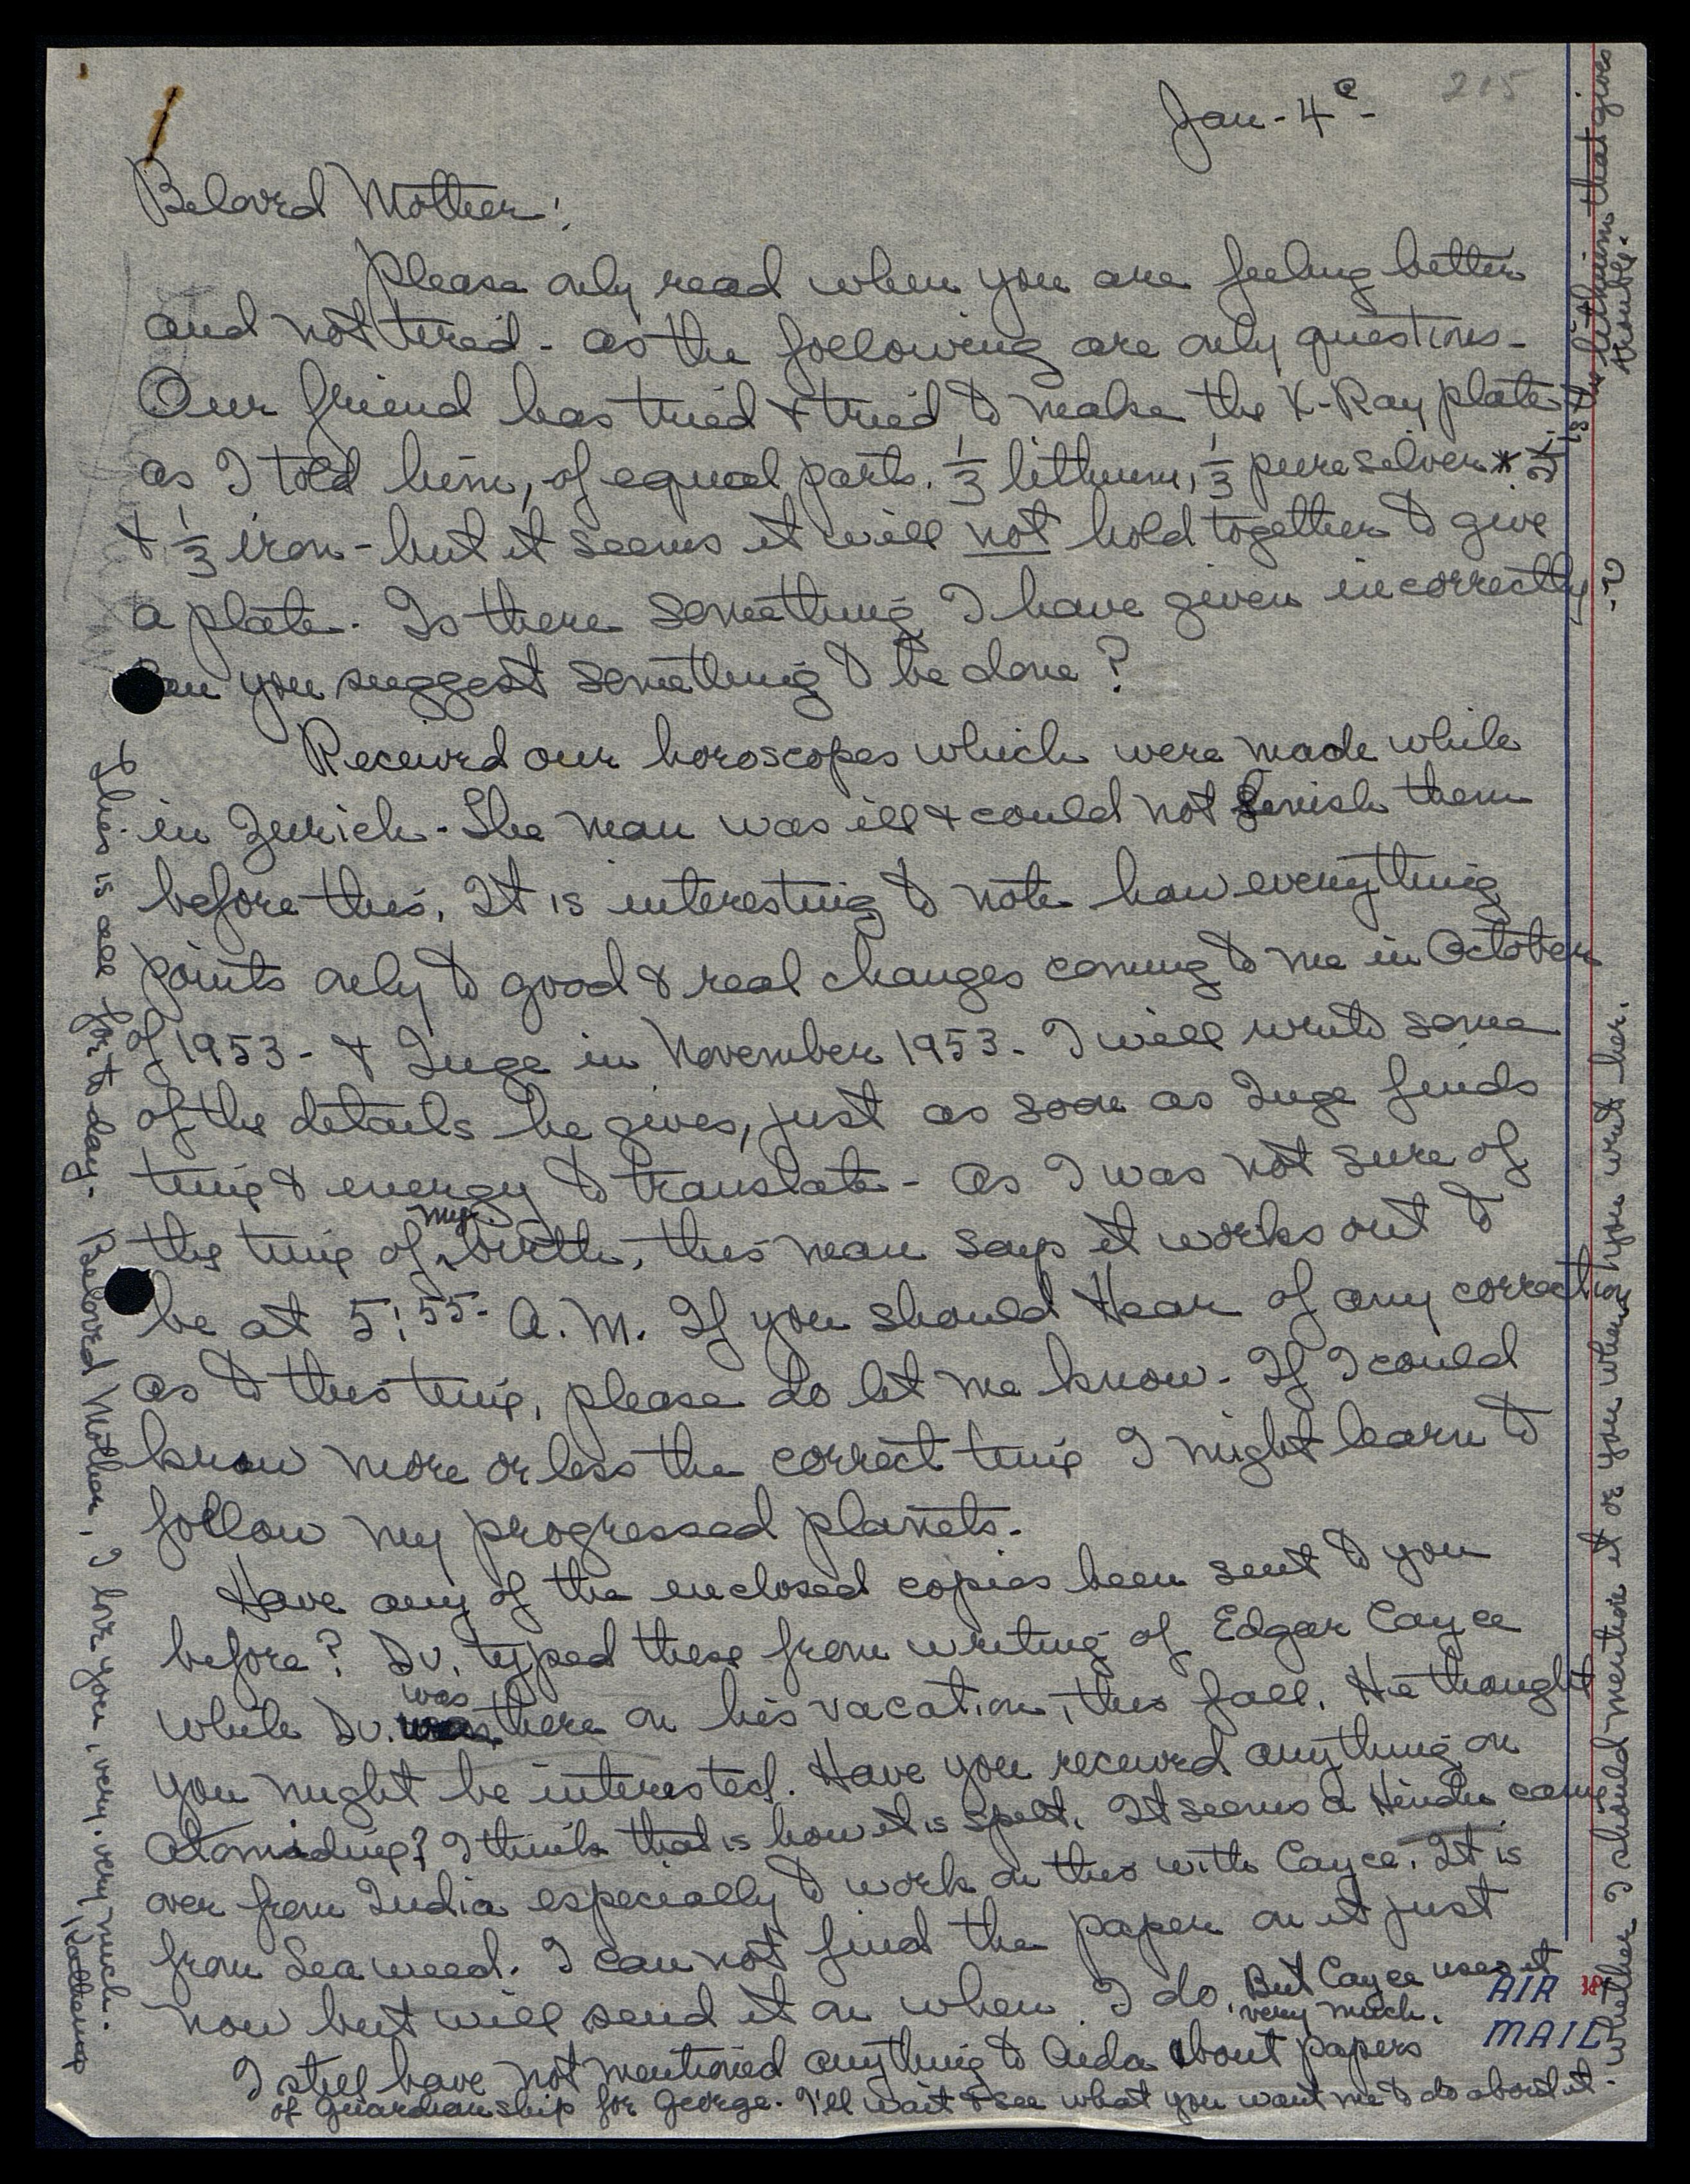 215
Jan - 4e -
Beloved Mother!
Please only read when you are feeling better
and not tired - as the following are only questions -
Our friend has tried & tried to make the X-Ray plate
as I told him, of equal parts. 1/3 lithium, 1/3 pure silver *
& 1/3 iron - but it seems it will not hold together to give
a plate. Is there something I have given incorrectly - ?
Can you suggest something to be done?
Received our horoscopes which were made while
in Zurich - The man was ill & could not finish them
before this. It is interesting to note how everything
points only to good & real changes coming to me in October
of 1953 - & Inge in November 1953. I will write some
of the details he gives, just as soon as Inge finds
time & energy to translate - As I was not sure of
the time of my birth, this man says it works out to
be at 5:55 - A.M. If you should Hear of any correction
as to this time, please do let me know. If I could
know more or less the correct time I might learn to
follow my progressed planets.
Have any of the enclosed copies been sent to you
before? Dv. typed these from writing of Edgar Cayce
while Dv. was there on his vacation, this fall. He thought
you might be interested. Have you received anything on
Atomidine? I think that is how it is spelt. It seems a Hindu came
over from India especially to work on this with Cayce. It is
from Sea weed. I can not find the paper on it just
now but will send it on when I do. But Cayce uses it
very much.
I still have not mentioned anything to Aida about papers
of guardianship for George. I'll wait & see what you want me to do about it -
whether I should mention it or you when you write her.
* Is it the lithium that gives
trouble.
& this is all for to-day. Beloved Mother, I love you, very, very much.
AIR
MAIL